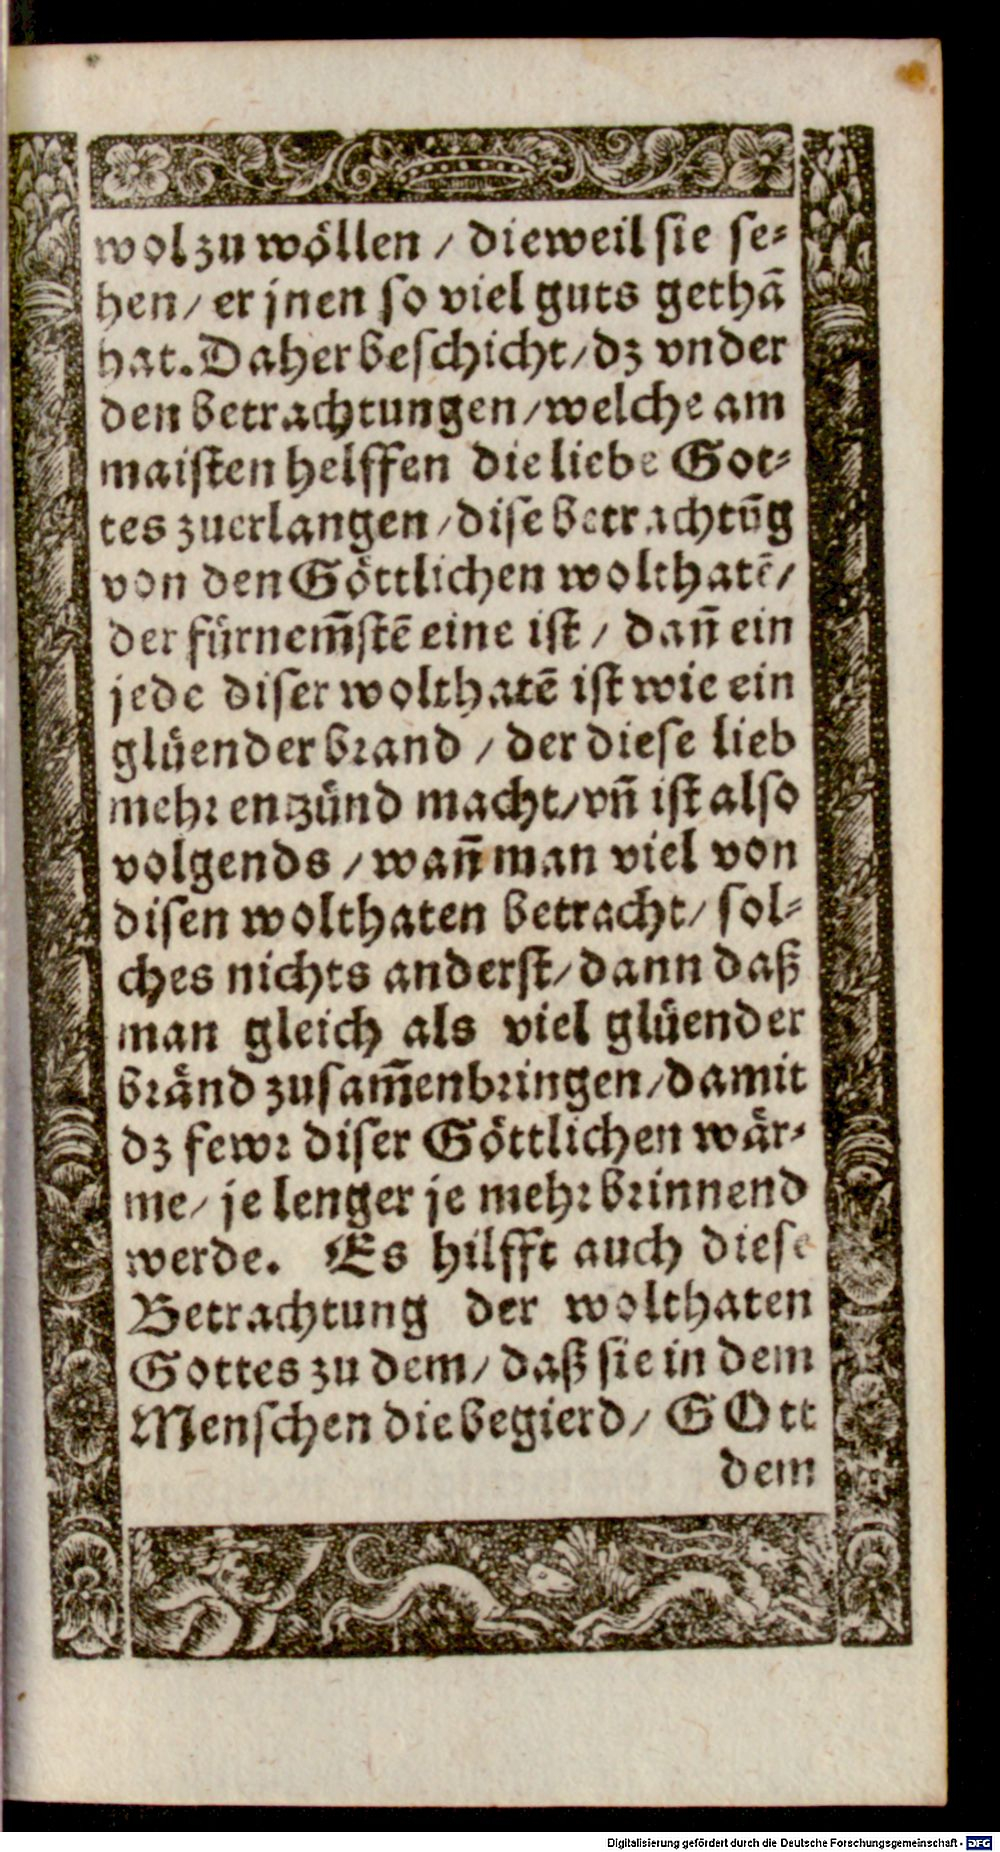 wol zu wöllen / dieweil sie se-
hen / er jnen so viel guts gethã
hat. Daher beschicht / dz vnder
den betrachtungen / welche am
maisten helffen die liebe Got-
tes zuerlangen / dise betrachtũg
von den Göttlichen wolthatẽ /
der fürnem̃stẽ eine ist / dañ ein
jede diser wolthatẽ ist wie ein
glüender brand / der diese lieb
mehr entzünd macht / vñ ist also
volgends / wañ man viel von
disen wolthaten betracht / sol-
ches nichts anderst / dann daß
man gleich als viel glüender
bränd zusam̃enbringen / damit
dz fewr diser Göttlichen wär-
me / je lenger je mehr brinnend
werde. Es hilfft auch diese
Betrachtung der wolthaten
Gottes zu dem / daß sie in dem
Menschen die begierd / GOtt
dem
Digitalisierung gefördert durch die Deutsche Forschungsgemeinschaft - DFG